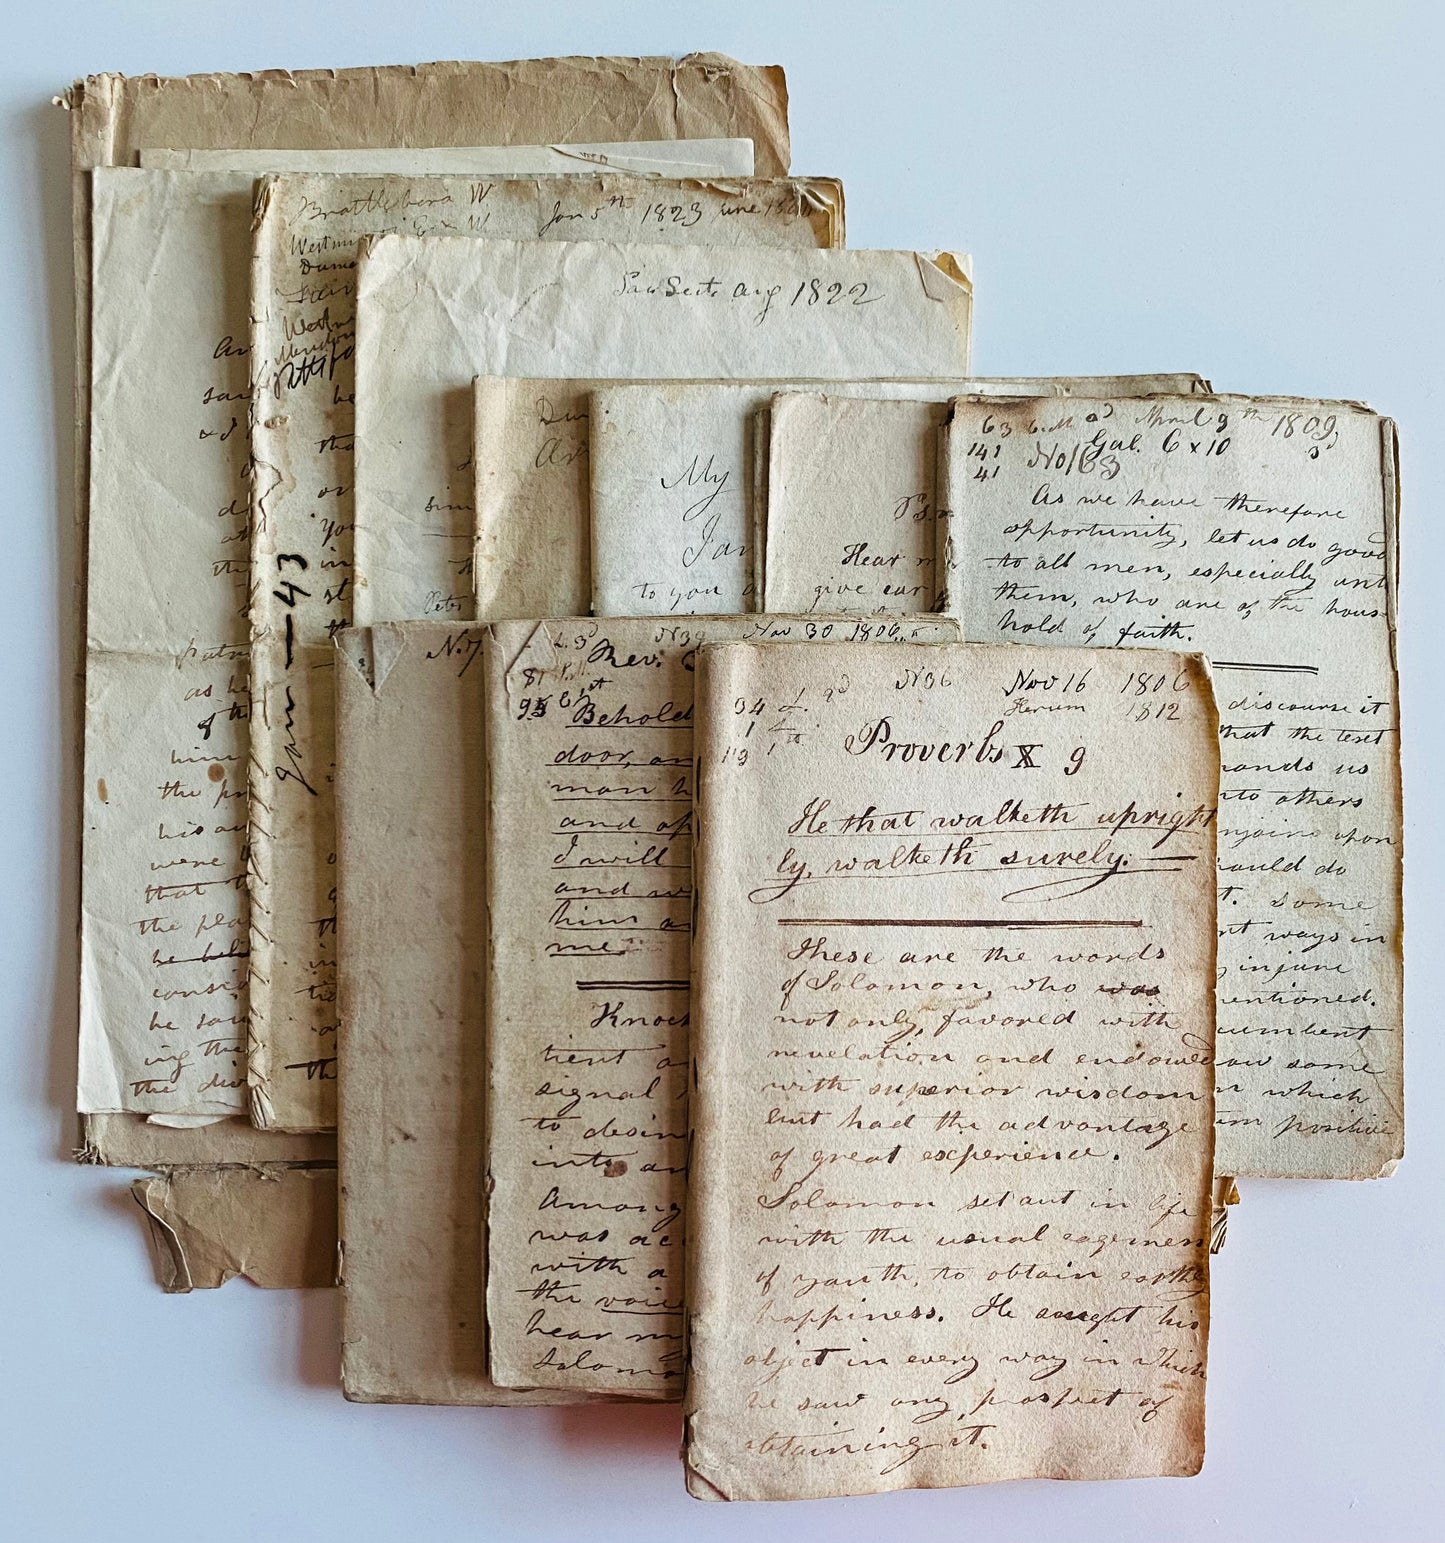 Brattleboro W
Jan 5th 1823
June
Westmi
Dumm
43
Aug 1822
sim
Peter
My
Jan
to you a
Hear m
give ear
63 April 9th 1809
141 Gal. 6 x 10
41 No 163
As we have therefore
opportunity, let us do good
to all men, especially unt
them, who are of the hous-
hold of faith.
discourse it
that the text
ands us
to others
njoins upon
ould do
t. Some
nt ways in
injure
entioned.
cumbent
ow some
n which
positive
as he
of th
him
the pr
his au
were
that t
the pla
he beli
consid
he saw
ing the
the div
N. 7.
N 39 Nov 30 1806
Rev.
81
95
Behold
door, an
man h
and op
I will
and w
him a
me
Knock
tient a
signal
to desir
into an
Among
was ac
with a
the voice
hear m
Solomo
94 N 36 Nov 16 1806
1 Iterum 1812
119
Proverbs X 9
He that walketh upright
ly, walketh surely.
These are the words
of Solomon, who was
not only favored with
revelation and endowed
with superior wisdom
but had the advantage
of great experience.
Solomon set out in life
with the usual eagerness
of youth, to obtain earthly
happiness. He sought his
object in every way in which
he saw any prospect of
obtaining it.